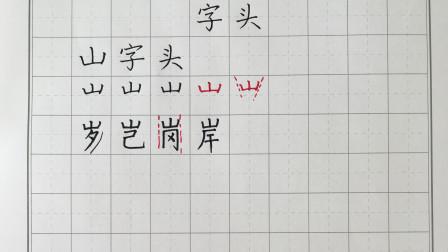 字头
山字头
山山山山山
岁岂岗岸